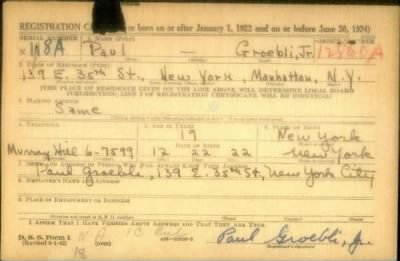 REGISTRATION CARD—(Men born on or after January 1, 1922 and on or before June 30, 1924)
SERIAL NUMBER 1. NAME (Print) ORDER NUMBER
N 118A Paul Groebli, Jr. 12360A
(First) (Middle) (Last)
2. PLACE OF RESIDENCE (Print)
139 E. 35th St., New York, Manhattan, N.Y.
(Number and street) (Town, township, village, or city) (County) (State)
[THE PLACE OF RESIDENCE GIVEN ON THE LINE ABOVE WILL DETERMINE LOCAL BOARD
JURISDICTION; LINE 2 OF REGISTRATION CERTIFICATE WILL BE IDENTICAL]
3. MAILING ADDRESS
Same
4. TELEPHONE 5. AGE IN YEARS 6. PLACE OF BIRTH
19 New York
DATE OF BIRTH
Murray Hill 6-7599 12 22 22 New York
(Mo.) (Day) (Yr.)
7. NAME AND ADDRESS OF PERSON WHO WILL ALWAYS KNOW YOUR ADDRESS
Paul Groebli, 139 E. 35th St, New York City
8. EMPLOYER'S NAME AND ADDRESS
9. PLACE OF EMPLOYMENT OR BUSINESS
(Number and street or R. F. D. number) (Town) (County) (State)
I AFFIRM THAT I HAVE VERIFIED ABOVE ANSWERS AND THAT THEY ARE TRUE.
D. S. S. Form 1
(Revised 6-1-42) (over) Paul Groebli, Jr.
(Registrant's signature)